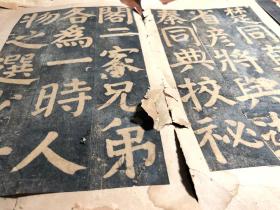 楚同
省彦將與
秦同典校秘
閣二家兄弟
各為一時人
物之選